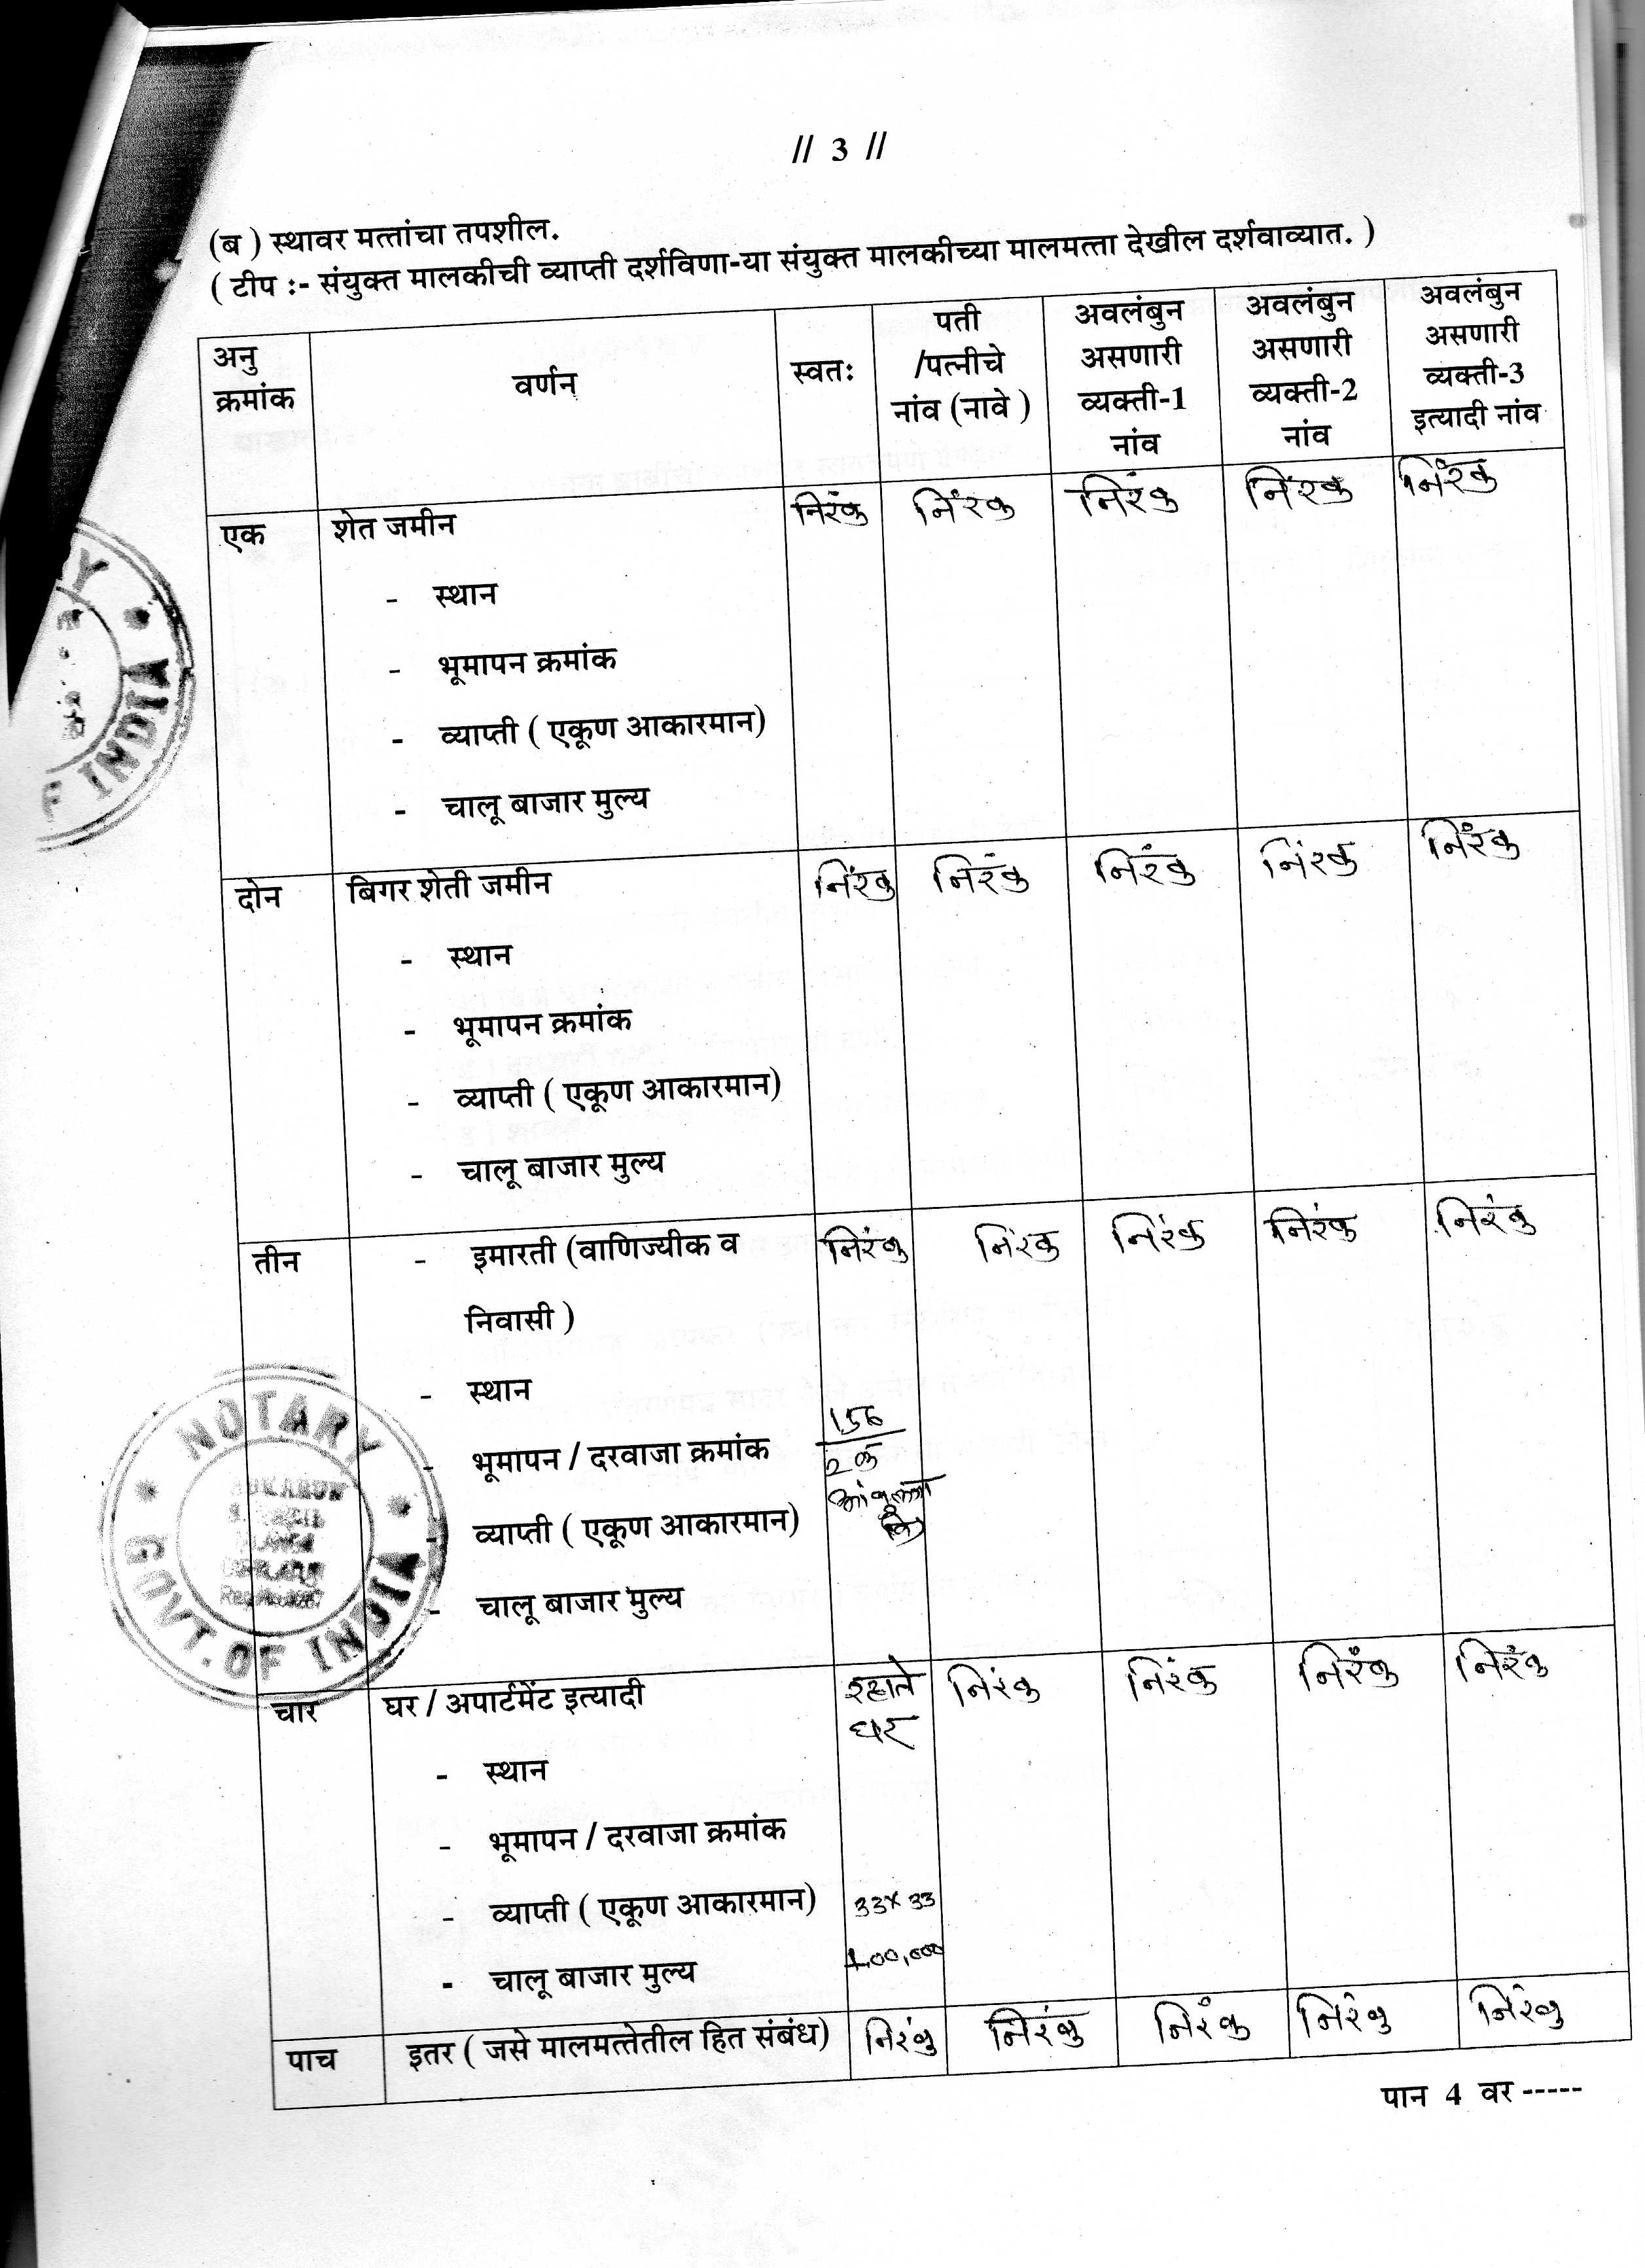 // 3 //
(ब ) स्थावर मत्तांचा तपशील.
( टीप :- संयुक्त मालकीची व्याप्ती दर्शविणा-या संयुक्त मालकीच्या मालमत्ता देखील दर्शवाव्यात. )
अनु क्रमांक वर्णन स्वतः पती /पत्नीचे नांव (नावे ) अवलंबुन असणारी व्यक्ती-1 नांव अवलंबुन असणारी व्यक्ती-2 नांव अवलंबुन असणारी व्यक्ती-3 इत्यादी नांव
एक शेत जमीन निरंक निरंक निरंक निरंक निरंक
- स्थान
- भूमापन क्रमांक
- व्याप्ती ( एकूण आकारमान)
- चालू बाजार मुल्य
दोन बिगर शेती जमीन निरंक निरंक निरंक निरंक निरंक
- स्थान
- भूमापन क्रमांक
- व्याप्ती ( एकूण आकारमान)
- चालू बाजार मुल्य
तीन - इमारती (वाणिज्यीक व निरंक निरंक निरंक निरंक निरंक
निवासी )
- स्थान
- भूमापन / दरवाजा क्रमांक 156
- व्याप्ती ( एकूण आकारमान)
- चालू बाजार मुल्य
चार घर / अपार्टमेंट इत्यादी रहाते घर निरंक निरंक निरंक निरंक
- स्थान
- भूमापन / दरवाजा क्रमांक
- व्याप्ती ( एकूण आकारमान) 33x33
- चालू बाजार मुल्य 1,00,000
पाच इतर ( जसे मालमत्तेतील हित संबंध) निरंक निरंक निरंक निरंक निरंक
पान 4 वर -----
NOTARY
GOVT. OF INDIA